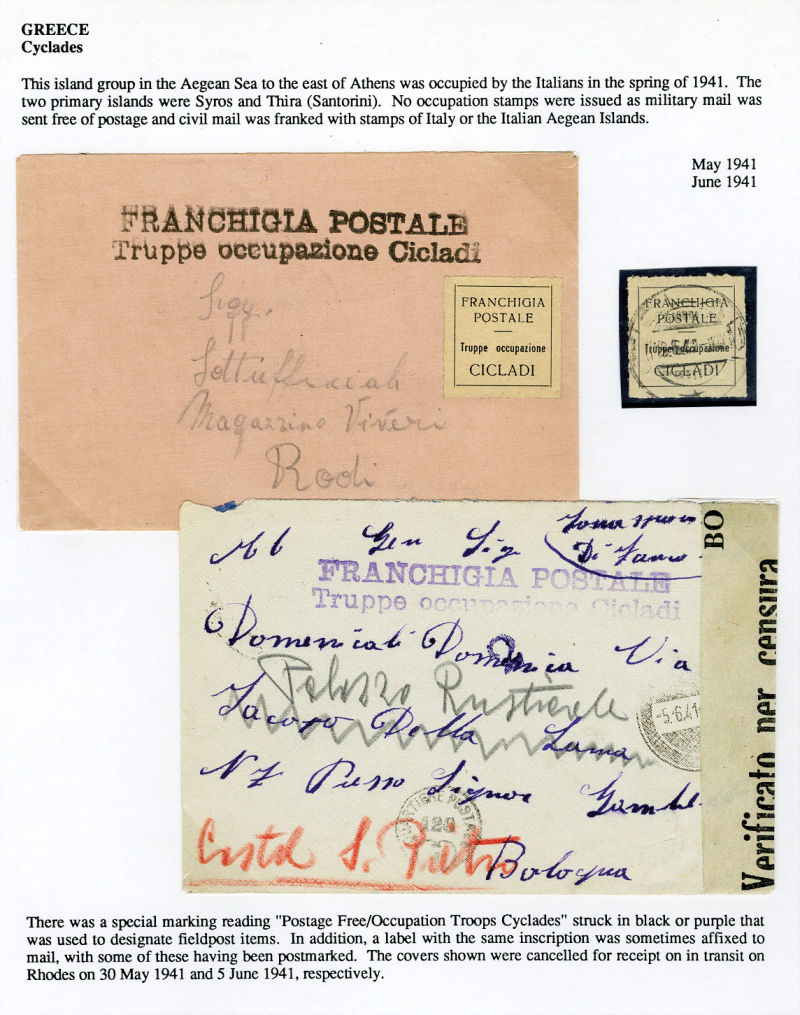 GREECE
Cyclades
This island group in the Aegean Sea to the east of Athens was occupied by the Italians in the spring of 1941. The
two primary islands were Syros and Thira (Santorini). No occupation stamps were issued as military mail was
sent free of postage and civil mail was franked with stamps of Italy or the Italian Aegean Islands.
May 1941
June 1941
FRANCHIGIA POSTALE
Truppe occupazione Cicladi
Sottufficiali
Magazzino Viveri
Rodi
FRANCHIGIA
POSTALE
Truppe occupazione
CICLADI
FRANCHIGIA
POSTALE
Truppe occupazione
CICLADI
Gen Sig
FRANCHIGIA POSTALE
Truppe occupazione Cicladi
Domenicali Domenica Via
Palazzo
Jacopo Della Lana
-5.6.41
Signor
126
Castel S. Pietro
Bologna
BO
Verificato per censura
There was a special marking reading "Postage Free/Occupation Troops Cyclades" struck in black or purple that
was used to designate fieldpost items. In addition, a label with the same inscription was sometimes affixed to
mail, with some of these having been postmarked. The covers shown were cancelled for receipt on in transit on
Rhodes on 30 May 1941 and 5 June 1941, respectively.